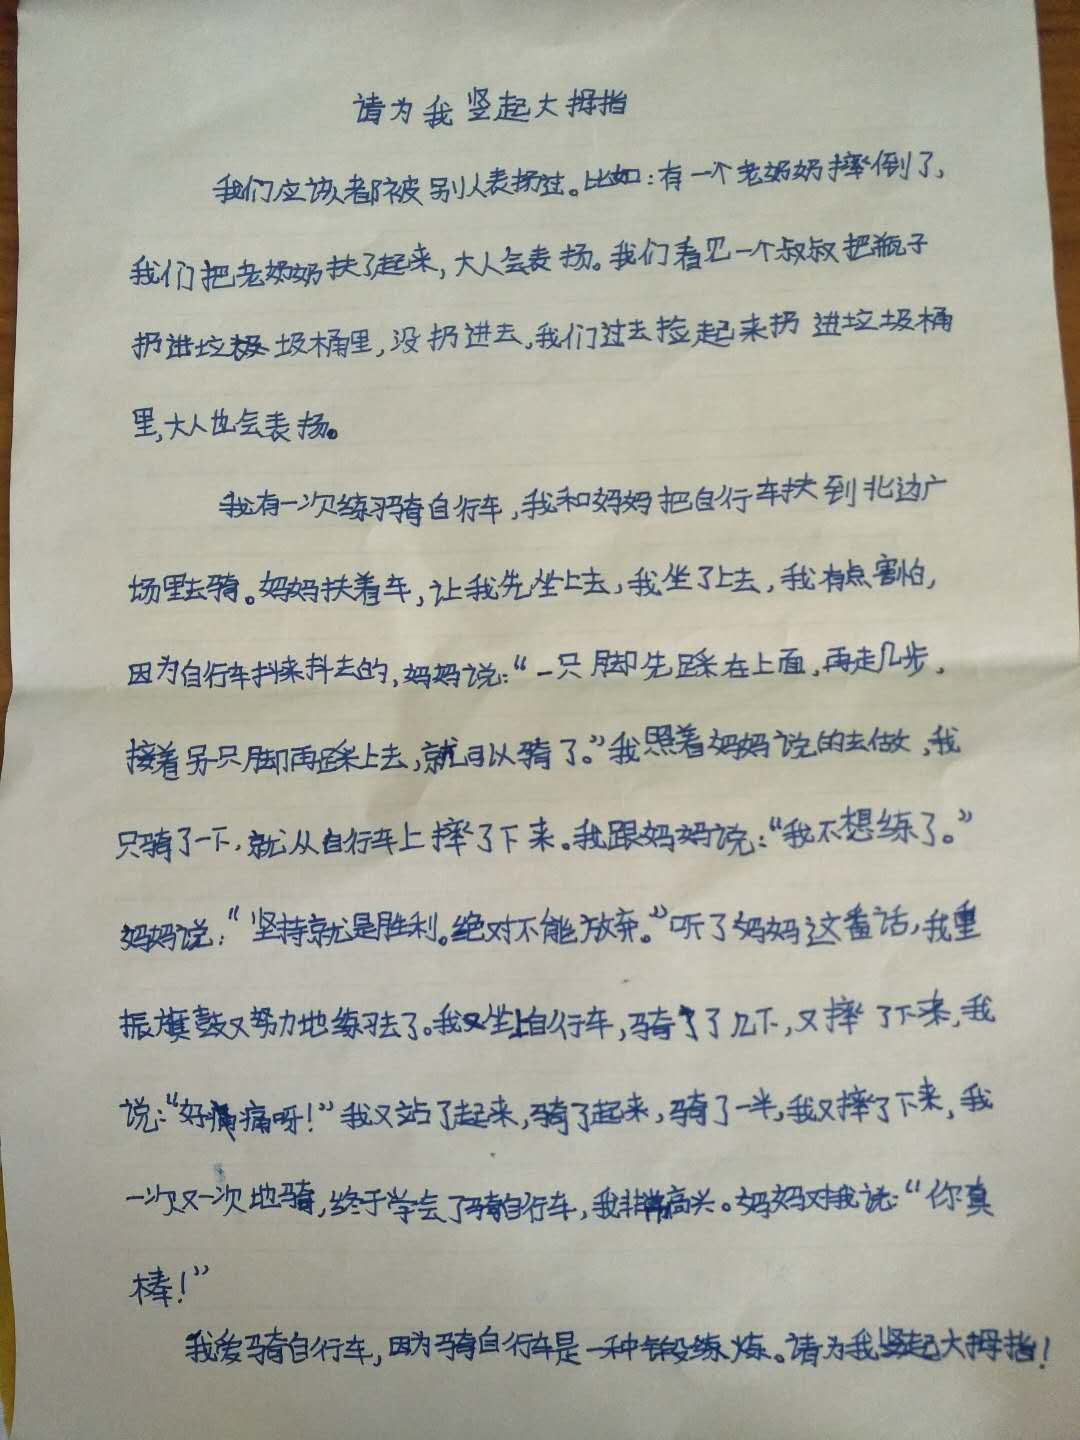 请为我竖起大拇指
我们应该都被别人表扬过。比如：有一个老奶奶摔倒了，
我们把老奶奶扶了起来，大人会表扬。我们看见一个叔叔把瓶子
扔进垃圾桶里，没扔进去，我们过去捡起来扔进垃圾桶
里，大人也会表扬。
我有一次练习骑自行车，我和妈妈把自行车扶到北边广
场里去骑。妈妈扶着车，让我先坐上去，我坐了上去，我有点害怕，
因为自行车抖来抖去的，妈妈说：“一只脚先踩在上面，再走几步，
接着另一只脚再踩上去，就可以骑了。”我照着妈妈说的去做，我
只骑了一下，就从自行车上摔了下来。我跟妈妈说：“我不想练了。”
妈妈说：“坚持就是胜利。绝对不能放弃。”听了妈妈这番话，我重
振旗鼓又努力地练习去了。我又坐上自行车，骑了几下，又摔了下来，我
说：“好痛呀！”我又站了起来，骑了起来，骑了一半，我又摔了下来，我
一次又一次地骑，终于学会了骑自行车，我非常高兴。妈妈对我说：“你真
棒！”
我爱骑自行车，因为骑自行车是一种锻炼。请为我竖起大拇指！